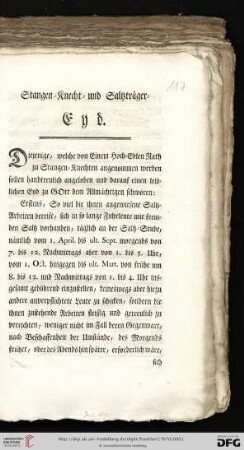 117
Stangen-Knecht- und Saltzträger-
Eyd.
Diejenige, welche von Einem Hoch-Edlen Rath
zu Stangen-Knechten angenommen werden
sollen handtreulich angeloben und darauf einen leib-
lichen Eyd zu GOtt dem Allmächtigen schwören:
Erstens, So viel die ihnen angewiesene Saltz-
Arbeiten betrift, sich in so lange Fuhrleute mit
Saltz vorhanden, täglich an der Saltz-Stube,
nämlich vom 1. April bis ult. Sept. morgends von
7. bis 12. Nachmittags aber von 1. bis 5. Uhr,
vom 1. Oct. hingegen bis ult. Mart. von frühe um
8. bis 12. und Nachmittags von 1. bis 4. Uhr ins-
gesamt gebührend einzustellen, keineswegs aber hiezu
andere unverpflichtete Leute zu schicken, sondern die
ihnen zustehende Arbeiten fleisig und getreulich zu
verrichten, weniger nicht im Fall deren Gegenwart,
nach Beschaffenheit der Umstände, des Morgends
früher, oder des Abends hin später, erforderlich wäre,
sich